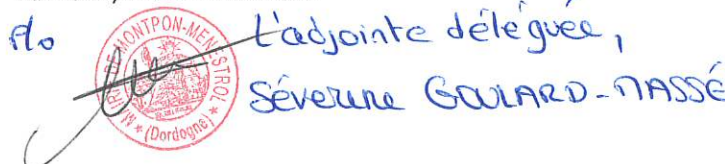 P/o
L'adjointe déléguée,
Séverine GOULARD-MASSÉ
MAIRIE DE MONTPON-MENESTROL
(Dordogne)